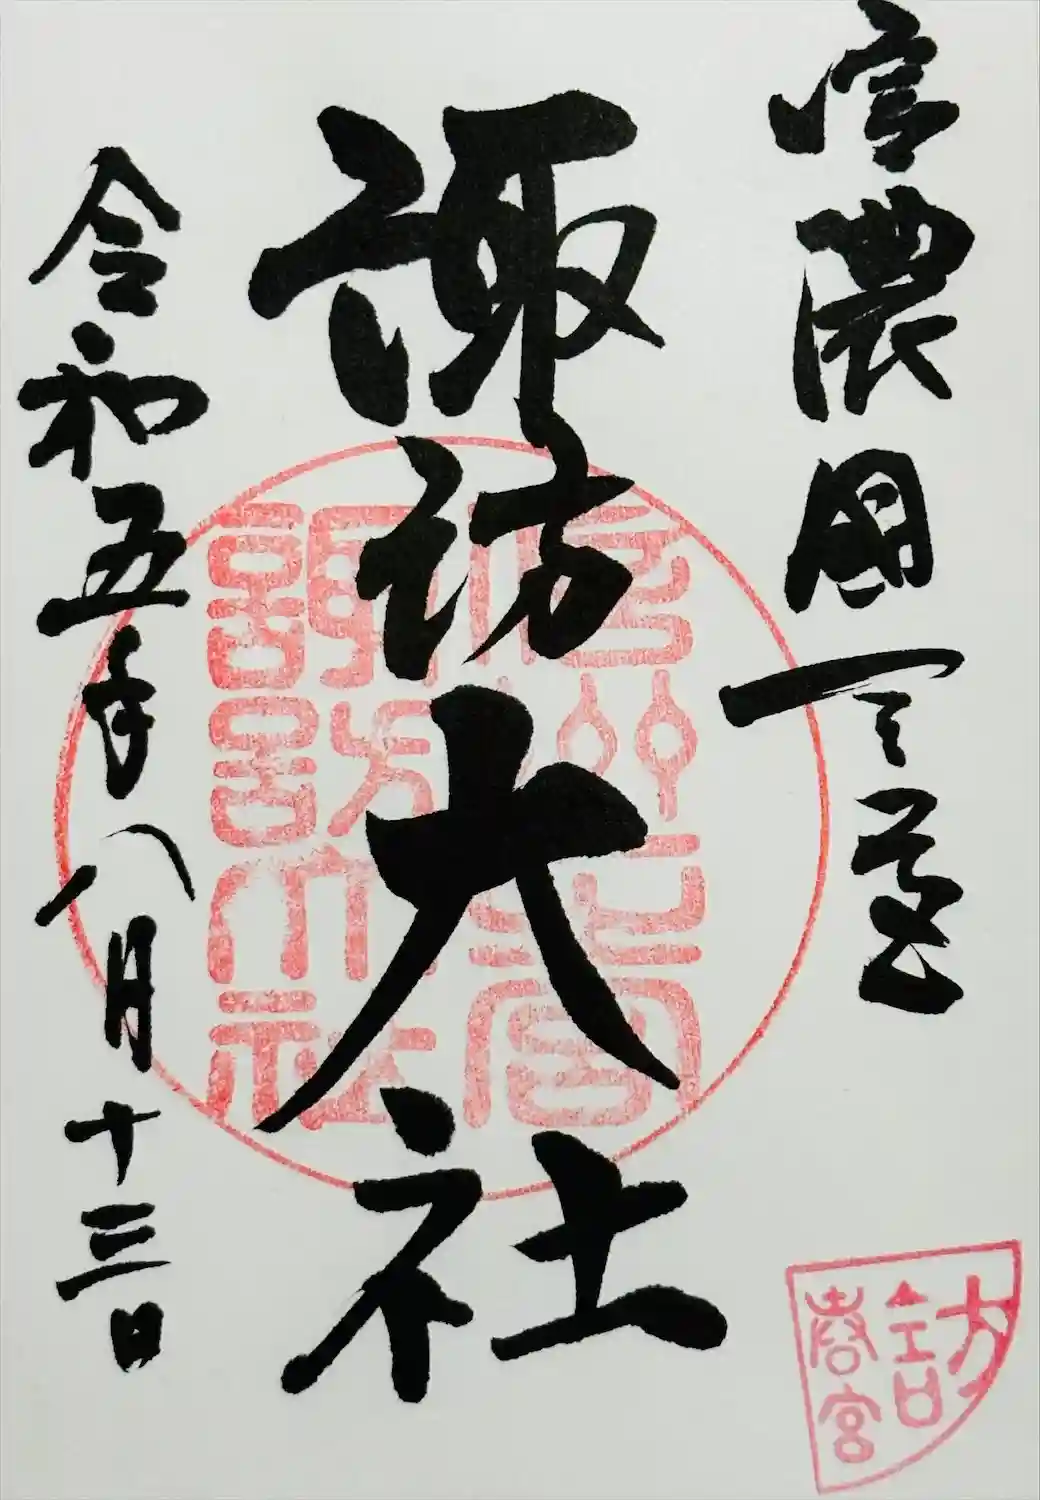 信濃國一之宮
諏訪大社
令和五年八月十三日
信州一之宮
諏訪大社
訪
春宮